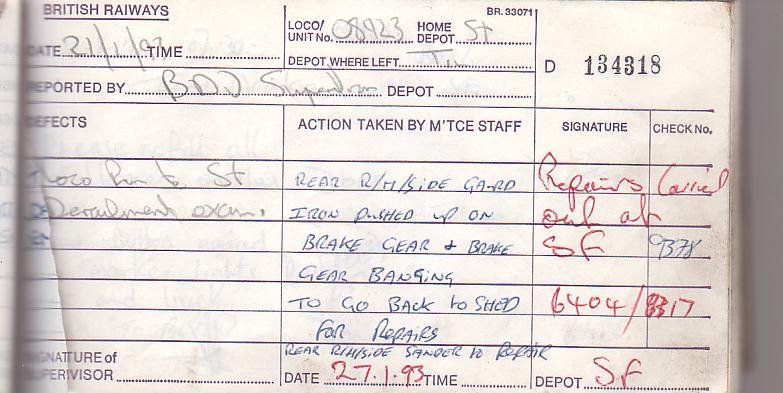 BRITISH RAIWAYS
BR. 33071
LOCO/ UNIT No. 08923 HOME DEPOT St
DATE 21/1/93 TIME
DEPOT WHERE LEFT
D 134318
REPORTED BY DEPOT
DEFECTS ACTION TAKEN BY M'TCE STAFF SIGNATURE CHECK No.
Loco to St REAR R/H/SIDE GAURD Repairs Carried
Derailment exam. IRON PUSHED UP ON out at
BRAKE GEAR & BRAKE SF 9378
GEAR BANGING
TO GO BACK to SHED 6404/8317
FOR REPAIRS
REAR R/H/SIDE SANDER to REPAIR
SIGNATURE of SUPERVISOR DATE 27.1.93 TIME DEPOT SF